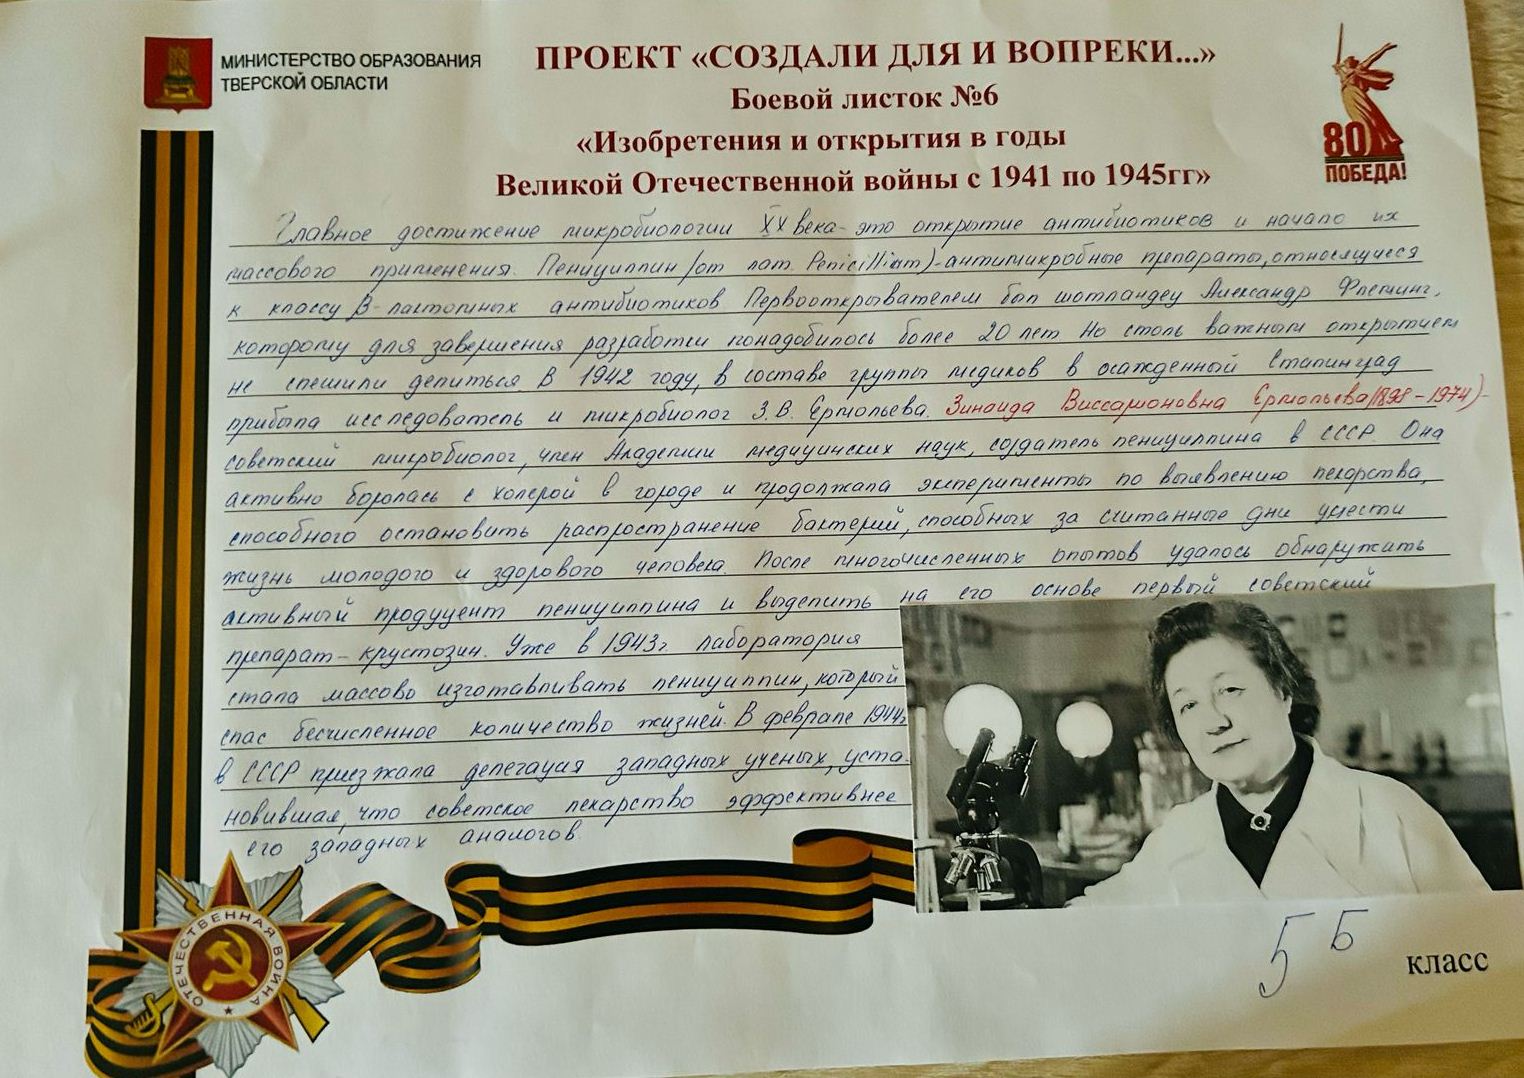 МИНИСТЕРСТВО ОБРАЗОВАНИЯ
ТВЕРСКОЙ ОБЛАСТИ
ПРОЕКТ «СОЗДАЛИ ДЛЯ И ВОПРЕКИ...»
Боевой листок №6
«Изобретения и открытия в годы
Великой Отечественной войны с 1941 по 1945гг»
80
ПОБЕДА!
Главное достижение микробиологии XX века - это открытие антибиотиков и начало их
массового применения. Пенициллин /от лат. Penicillium) - антимикробные препараты, относящиеся
к классу β-лактопных антибиотиков Первооткрывателем был шотландец Александр Флеминг,
которому для завершения разработки понадобилось более 20 лет Но столь важным открытием
не спешили делиться. В 1942 году, в составе группы медиков в осажденный Сталинград
прибыла исследователь и микробиолог З.В. Ермольева. Зинаида Виссарионовна Ермольева (1898 - 1974) -
советский микробиолог, член Академии медицинских наук, создатель пенициллина в СССР. Она
активно боролась с холерой в городе и продолжала эксперименты по выявлению лекарства,
способного остановить распространение бактерий, способных за считанные дни унести
жизнь молодого и здорового человека. После многочисленных опытов удалось обнаружить
активный продуцент пенициллина и выделить на его основе первый советский
препарат - крустозин. Уже в 1943г. лаборатория
стала массово изготавливать пенициллин, который
спас бесчисленное количество жизней. В феврале 1944г.
в СССР приезжала делегация западных ученых, уста-
новившая, что советское лекарство эффективнее
его западных аналогов.
ОТЕЧЕСТВЕННАЯ ВОЙНА
5 Б класс